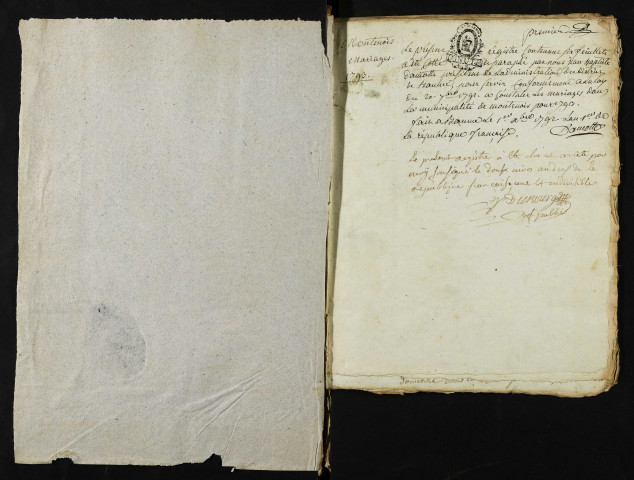 premier
Montenois
Mariages.
1793.
Le présent registre contenant six feuillets
a été cotté et paraphé par nous Jean Baptiste
Damotte président de l'administration du District
de Baume, pour servir conformement a la loy
du 20. 7bre 1792. a constater les mariages dans
la municipalité de montenois pour 1793.
fait a Baume Le 1er Xbre 1792 L'an 1er de
la république francaise.
Damotte
Le présent registre a été clos et arreté par
moy soussigné le douze nivos an deux de la
république francaise une et indivisible